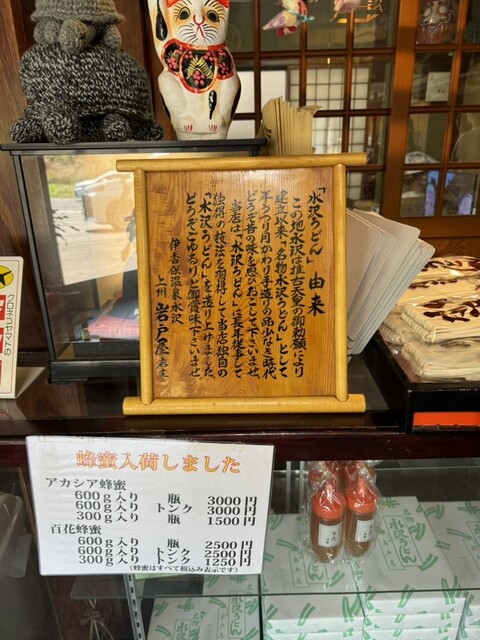 「水沢うどん」由来
この地水沢は推古天皇の御勅願により
建立以来「名物水沢うどん」として
年うつり月かわり手造りの品少なき時代
どうぞ昔の味を思ひおこして下さいませ
当店は「水沢うどん」に長年従事して
独得の技法を習得して当店独自の
「水沢うどん」を造り上げました
どうぞごゆるりと御賞味下さいませ
伊香保温泉水沢
上州 岩戸屋
クロネコヤマトの
蜂蜜入荷しました
アカシア蜂蜜
600g入り 瓶 3000円
600g入り トンク 3000円
300g入り 瓶 1500円
百花蜂蜜
600g入り 瓶 2500円
600g入り トンク 2500円
300g入り トンク 1250円
(蜂蜜はすべて税込み表示です)
水沢うどん
水沢うどん